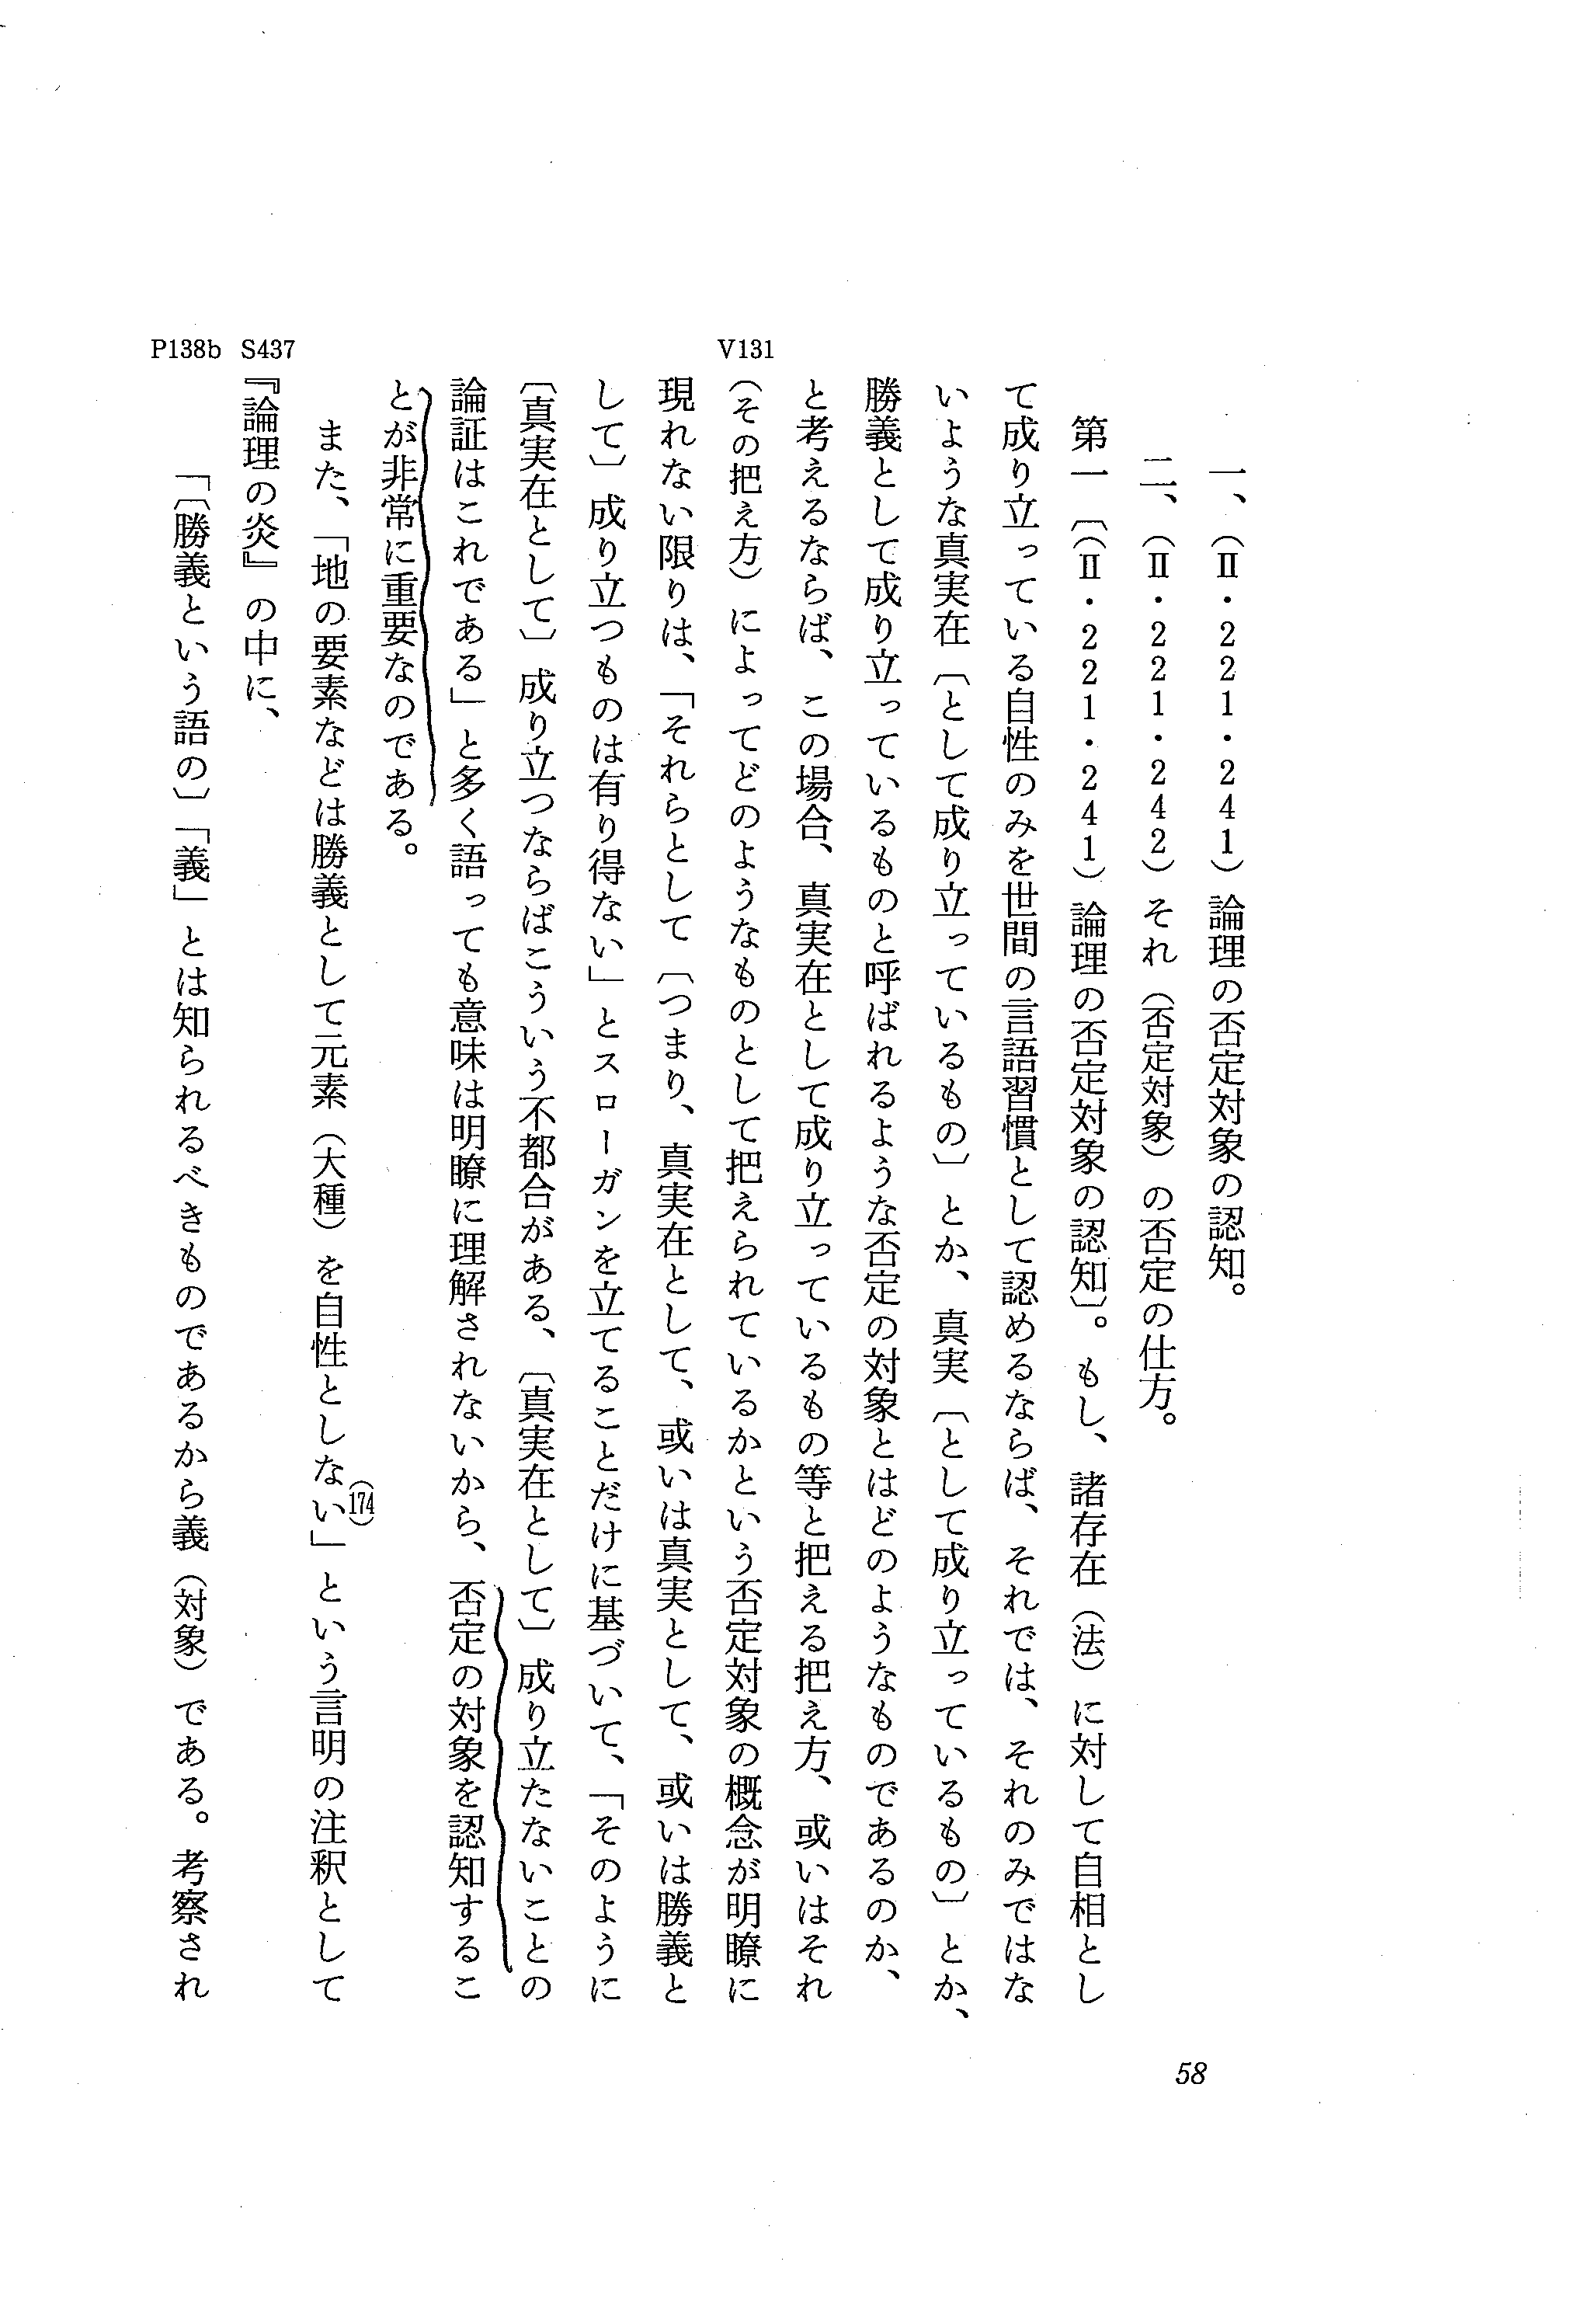 一、（Ⅱ・２２１・２４１）論理の否定対象の認知。
二、（Ⅱ・２２１・２４２）それ（否定対象）の否定の仕方。
第一〔（Ⅱ・２２１・２４１）論理の否定対象の認知〕。もし、諸存在（法）に対して自相とし
て成り立っている自性のみを世間の言語習慣として認めるならば、それでは、それのみではな
いような真実在〔として成り立っているもの〕とか、真実〔として成り立っているもの〕とか、
勝義として成り立っているものと呼ばれるような否定の対象とはどのようなものであるのか、
と考えるならば、この場合、真実在として成り立っているもの等と把える把え方、或いはそれ
V131
（その把え方）によってどのようなものとして把えられているかという否定対象の概念が明瞭に
現れない限りは、「それらとして〔つまり、真実在として、或いは真実として、或いは勝義と
して〕成り立つものは有り得ない」とスローガンを立てることだけに基づいて、「そのように
〔真実在として〕成り立つならばこういう不都合がある、〔真実在として〕成り立たないことの
論証はこれである」と多く語っても意味は明瞭に理解されないから、否定の対象を認知するこ
とが非常に重要なのである。
また、「地の要素などは勝義として元素（大種）を自性としない」(174)という言明の注釈として
S437
『論理の炎』の中に、
P138b
「〔勝義という語の〕「義」とは知られるべきものであるから義（対象）である。考察され
58